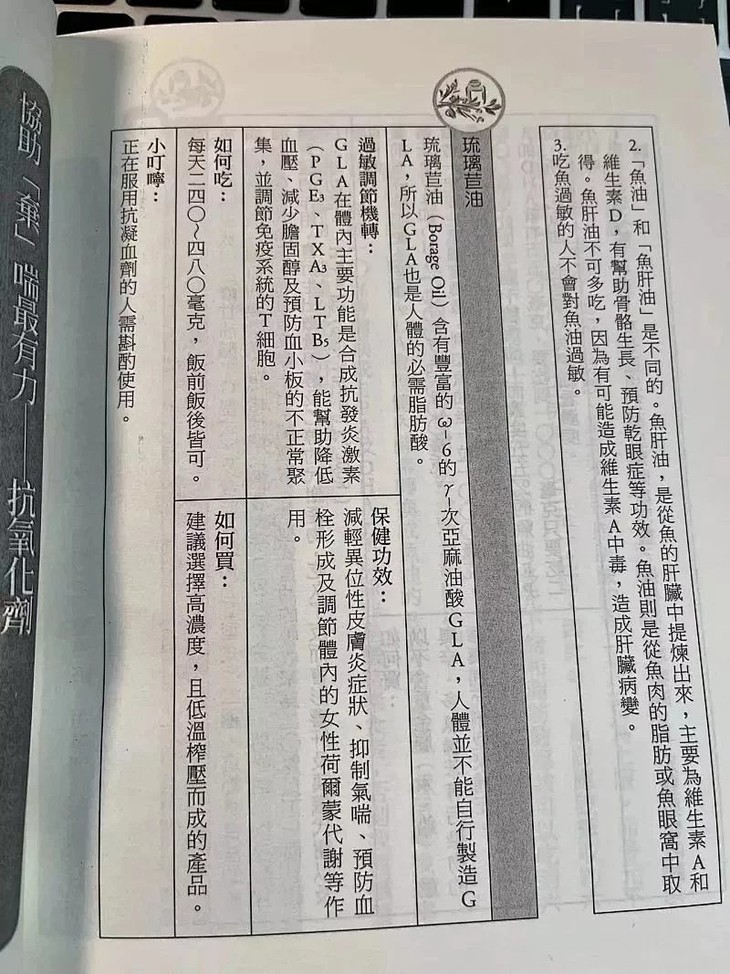 2.「魚油」和「魚肝油」是不同的。魚肝油，是從魚的肝臟中提煉出來，主要為維生素A和
維生素D，有幫助骨骼生長、預防乾眼症等功效。魚油則是從魚肉的脂肪或魚眼窩中取
得。魚肝油不可多吃，因為有可能造成維生素A中毒，造成肝臟病變。
3.吃魚過敏的人不會對魚油過敏。
琉璃苣油
琉璃苣油（Borage Oil）含有豐富的ω-6的γ-次亞麻油酸GLA，人體並不能自行製造G
LA，所以GLA也是人體的必需脂肪酸。
過敏調節機轉：
GLA在體內主要功能是合成抗發炎激素
（PGE₃、TXA₃、LTB₅），能幫助降低
血壓、減少膽固醇及預防血小板的不正常聚
集，並調節免疫系統的T細胞。
保健功效：
減輕異位性皮膚炎症狀、抑制氣喘、預防血
栓形成及調節體內的女性荷爾蒙代謝等作
用。
如何吃：
每天二四〇～四八〇毫克，飯前飯後皆可。
如何買：
建議選擇高濃度，且低溫榨壓而成的產品。
小叮嚀：
正在服用抗凝血劑的人需斟酌使用。
協助「棄」喘最有力——抗氧化劑